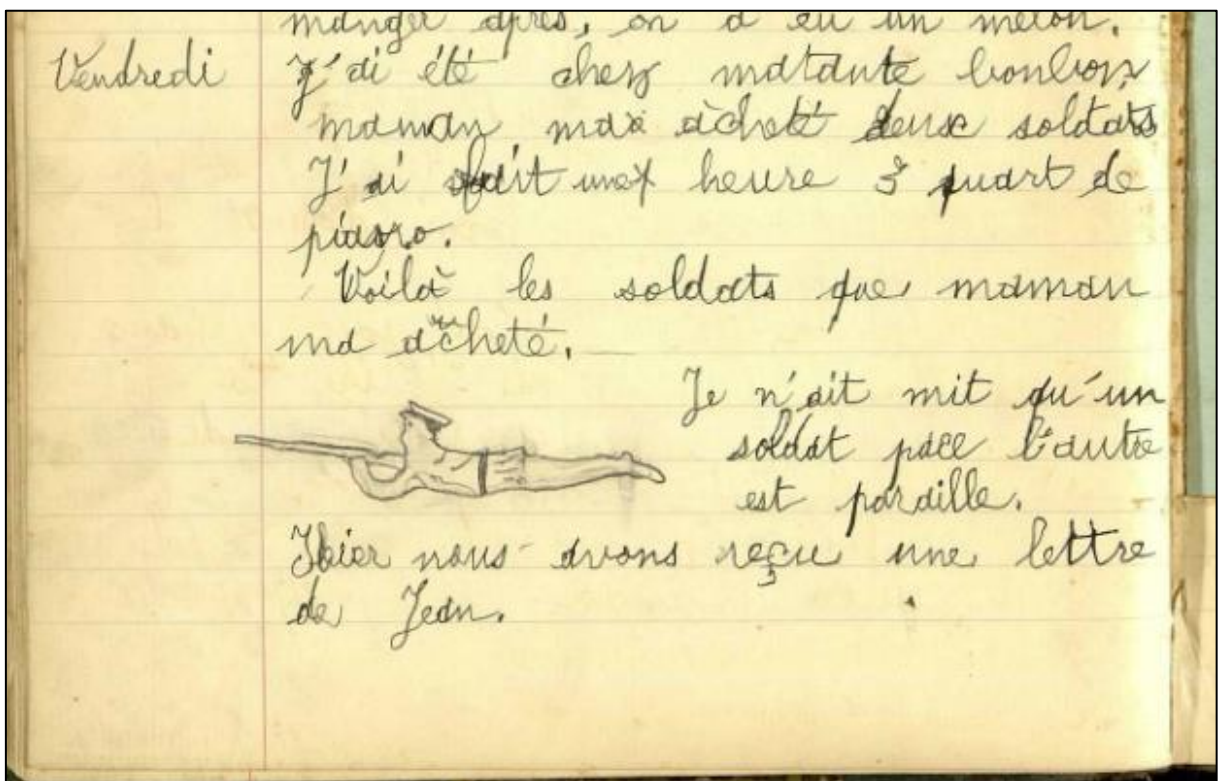 manger après, on a eu un melon.
Vendredi J'ai été chez matante bonbon,
maman ma acheté deux soldats
J'ai fait une heure 3 quart de
piano.
Voilà les soldats que maman
ma acheté.
Je n'ait mit qu'un
soldat pace l'autre
est paraille.
Hier nous avons reçu une lettre
de Jean.